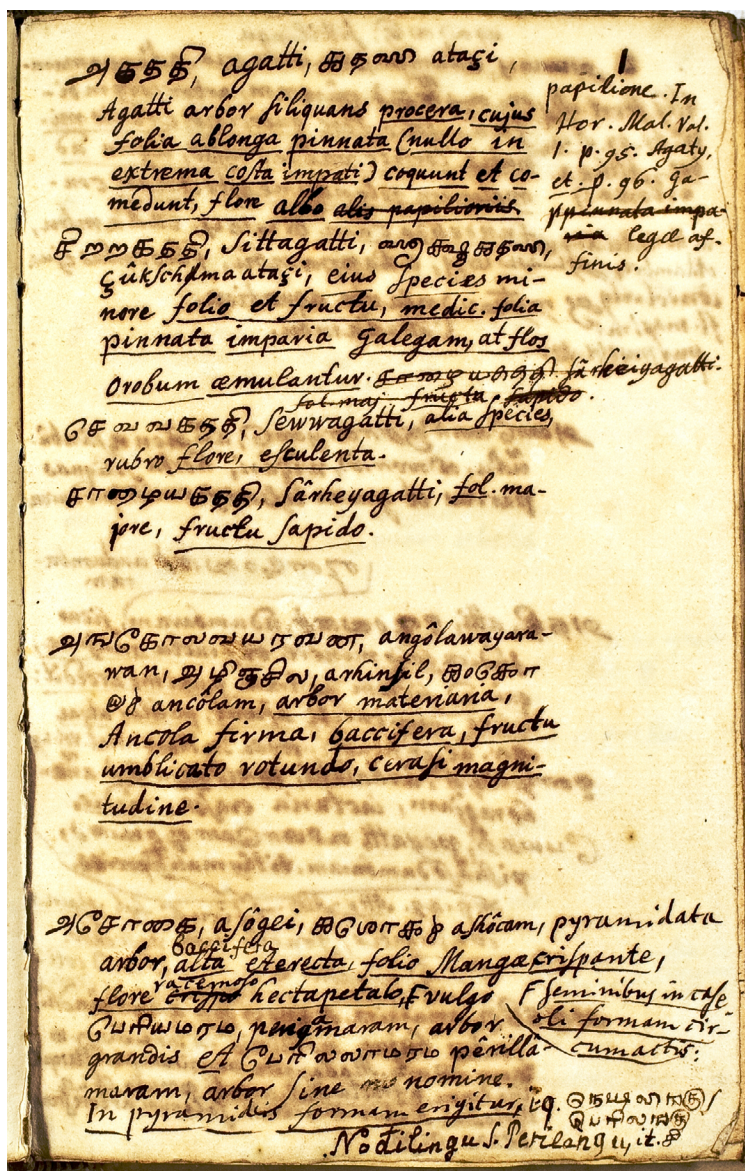 அகததி, agatti, ataçi,
Agatti arbor siliquans procera, cujus
folia ablonga pinnata (nullo in
extrema costa impati) coquunt et co-
medunt, flore albo alis papilioriis
papilione. In
Hor. Mal. Vol.
1. p. 95. Agaty,
et p. 96. Ga-
ppinnata impa-
ria legæ af-
finis.
1
சிறறகததி, Sittagatti,
çûkschmaataçi, eius species mi-
nore folio et fructu, medic. folia
pinnata imparia Galegam, at flos
Orobum æmulantur. சாழையகததி sârheiyagatti.
fol. maj. fructu sapido.
செவவகததி, Sewwagatti, alia species,
rubro flore, esculenta.
சாழையகததி, Sârheyagatti, fol. ma-
jore, fructu sapido.
அஙகோலவயரவன, angôlawayara-
wan, அழிஞசில, arhinsil,
ancôlam, arbor materiaria,
Ancola firma, baccifera, fructu
umblicato rotundo, cerasi magni-
tudine.
அசோகை, asôgei, ashôcam, pyramidata
baccifera
arbor, alta et erecta, folio Mangæ crispante,
racemoso
flore crispo hectapetalo, Γ vulgo
Γ seminibus in case
oli formam cir-
cumactis:
பெரியமரம, perigmaram, arbor
grandis et பேரிலலாமரம pêrillâ-
maram, arbor sine nomine.
In pyramidis formam erigitur, Eq. நெடிலிஙகு s.
பெரிலஙகு
Nedilingu s. Perilangu, it.